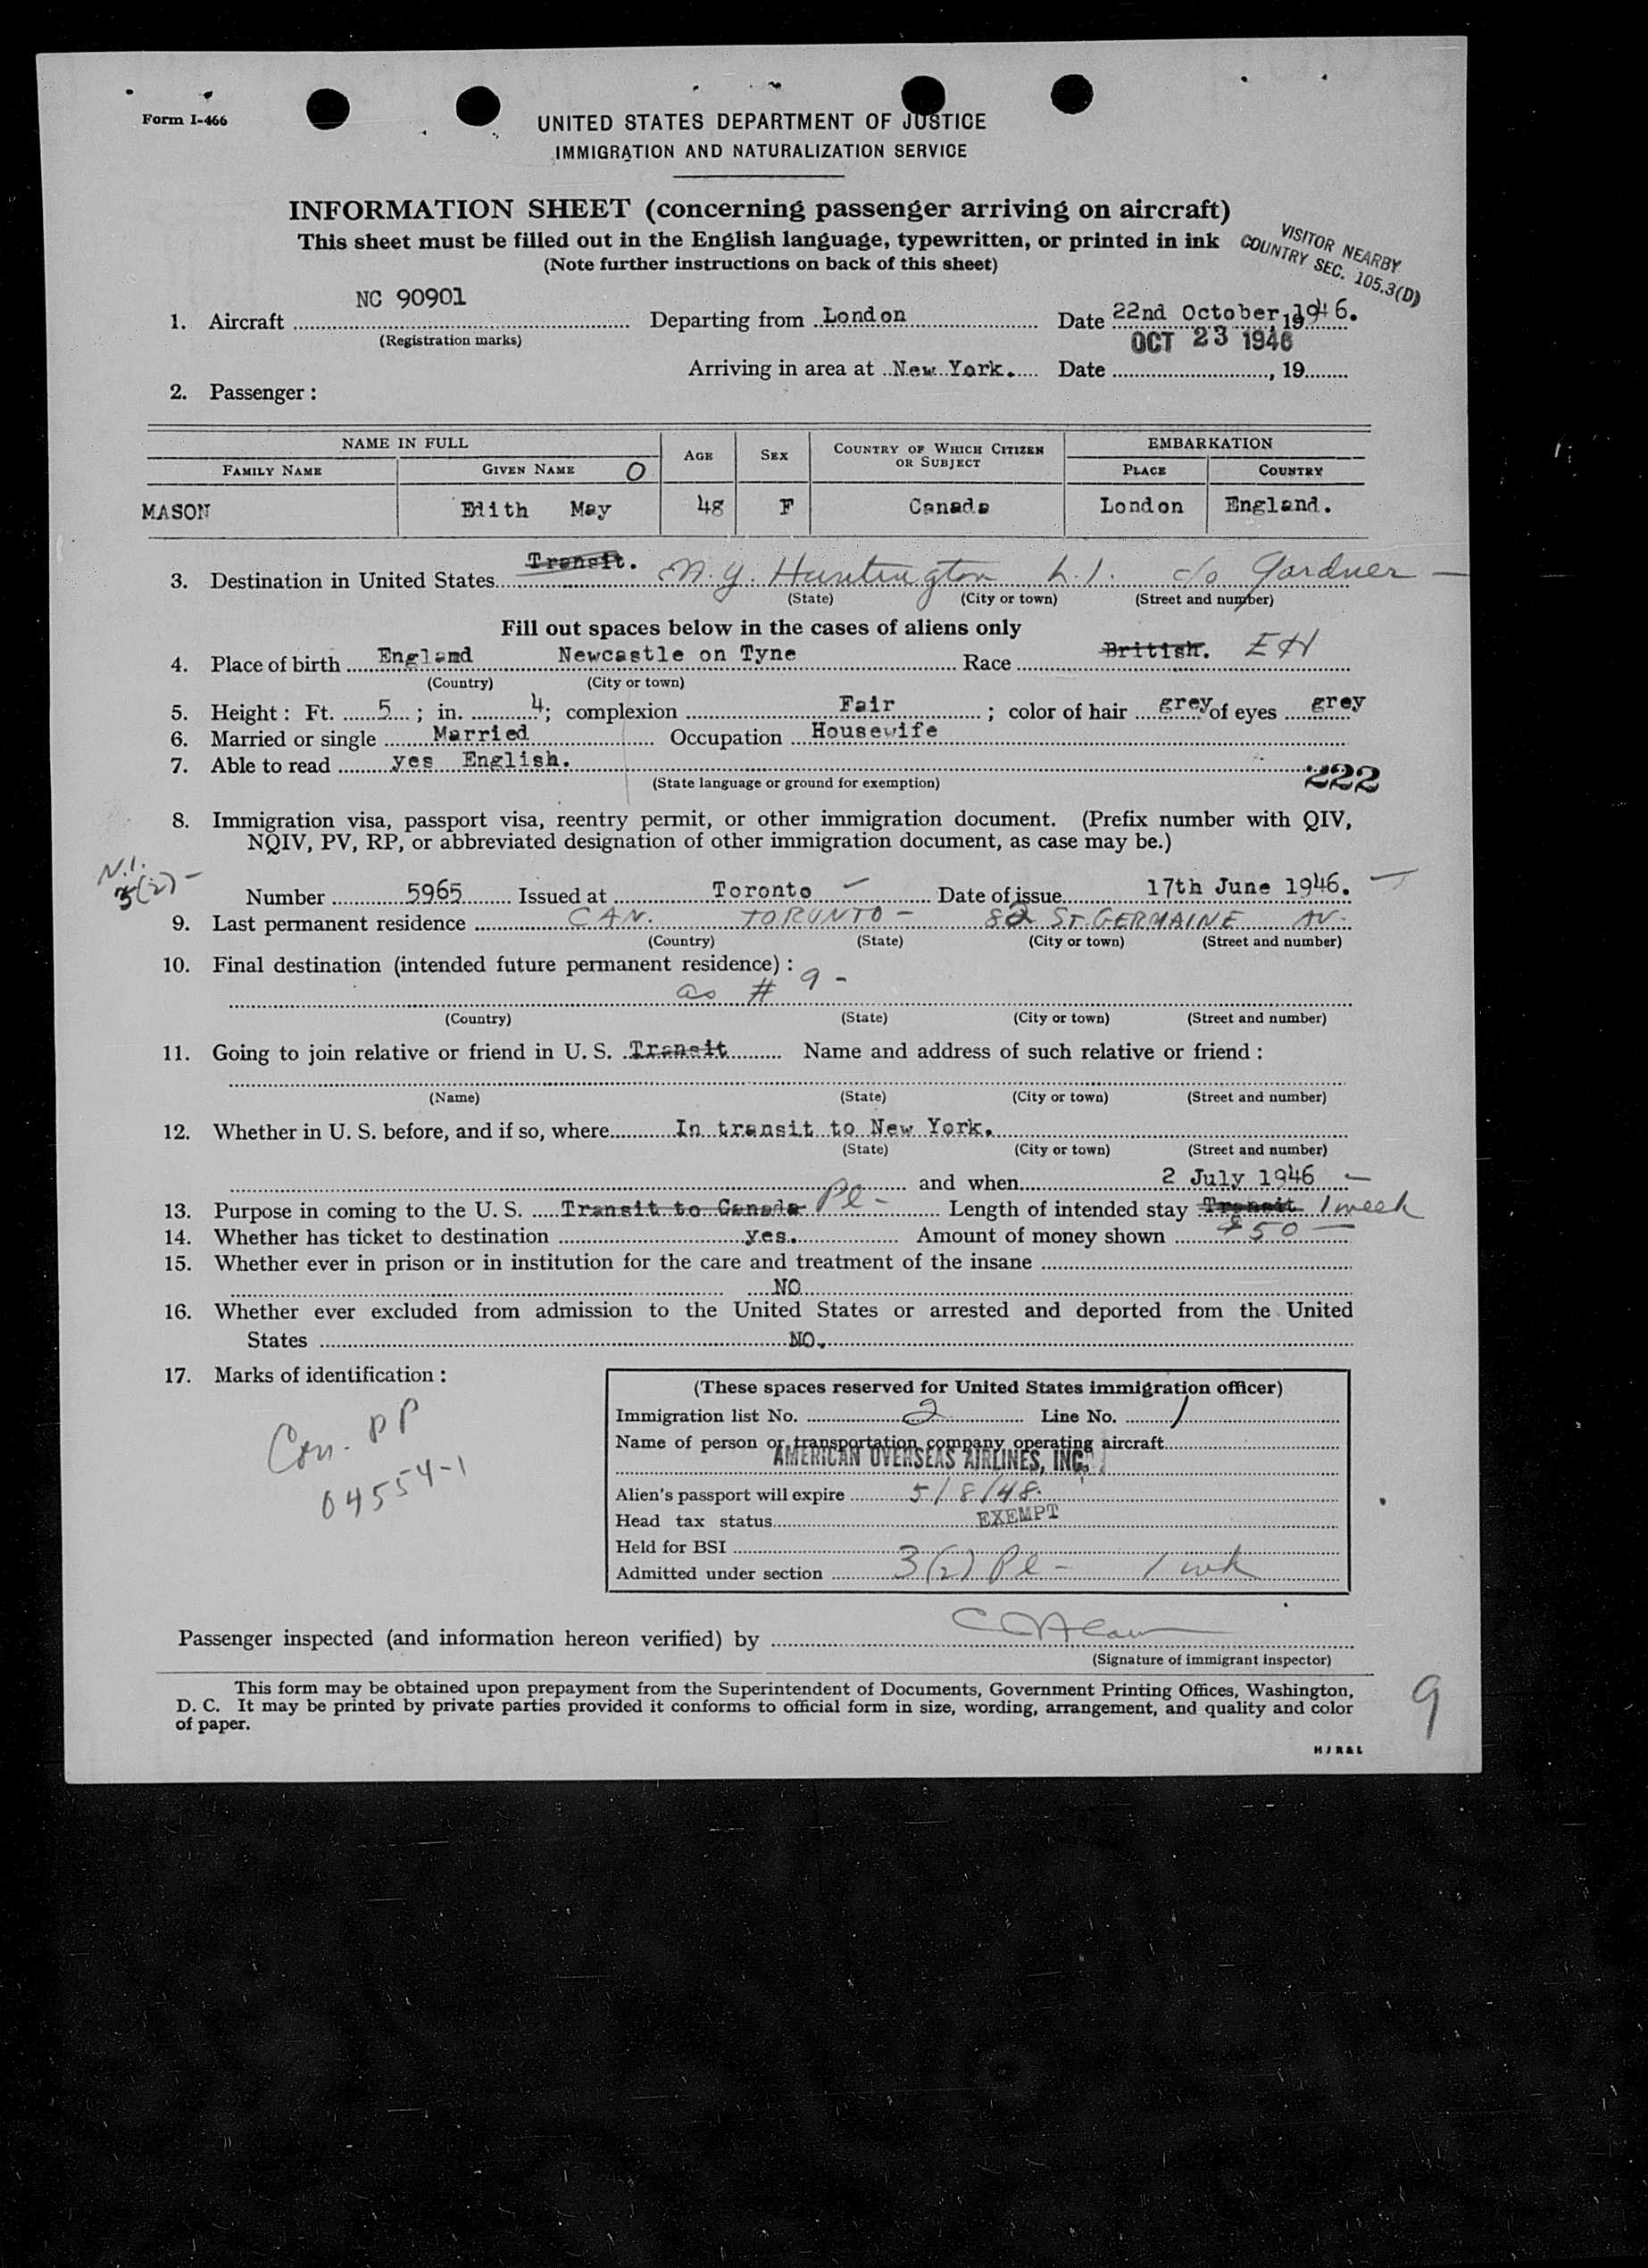 Form I-466
UNITED STATES DEPARTMENT OF JUSTICE
IMMIGRATION AND NATURALIZATION SERVICE
INFORMATION SHEET (concerning passenger arriving on aircraft)
This sheet must be filled out in the English language, typewritten, or printed in ink
(Note further instructions on back of this sheet)
VISITOR NEARBY
COUNTRY SEC. 105.3(D)
NC 90901
1. Aircraft Departing from London Date 22nd October, 1946.
(Registration marks)
OCT 23 1946
Arriving in area at New York. Date , 19
2. Passenger :
NAME IN FULL AGE SEX COUNTRY OF WHICH CITIZEN OR SUBJECT EMBARKATION
FAMILY NAME GIVEN NAME O PLACE COUNTRY
MASON Edith May 48 F Canada London England.
Transit.
3. Destination in United States N.Y. Huntington L.I. c/o Gardner —
(State) (City or town) (Street and number)
Fill out spaces below in the cases of aliens only
4. Place of birth England Newcastle on Tyne Race British. EH
(Country) (City or town)
5. Height : Ft. 5 ; in. 4; complexion Fair ; color of hair grey of eyes grey
6. Married or single Married Occupation Housewife
7. Able to read yes English.
(State language or ground for exemption)
222
8. Immigration visa, passport visa, reentry permit, or other immigration document. (Prefix number with QIV,
NQIV, PV, RP, or abbreviated designation of other immigration document, as case may be.)
N.I.
3(2) -
Number 5965 Issued at Toronto Date of issue 17th June 1946.
9. Last permanent residence CAN. TORONTO - 82 ST. GERMAINE AV.
(Country) (State) (City or town) (Street and number)
10. Final destination (intended future permanent residence) :
as # 9 -
(Country) (State) (City or town) (Street and number)
11. Going to join relative or friend in U. S. Transit Name and address of such relative or friend :
(Name) (State) (City or town) (Street and number)
12. Whether in U. S. before, and if so, where In transit to New York.
(State) (City or town) (Street and number)
and when 2 July 1946 —
13. Purpose in coming to the U. S. Transit to Canada Pl - Length of intended stay Transit 1 week
14. Whether has ticket to destination yes. Amount of money shown $50
15. Whether ever in prison or in institution for the care and treatment of the insane
NO
16. Whether ever excluded from admission to the United States or arrested and deported from the United
States NO.
17. Marks of identification :
Can. PP
04554-1
(These spaces reserved for United States immigration officer)
Immigration list No. 2 Line No. 1
Name of person or transportation company operating aircraft
AMERICAN OVERSEAS AIRLINES, INC.
Alien's passport will expire 5/8/48.
Head tax status EXEMPT
Held for BSI
Admitted under section 3(2) Pl - 1 wk
Passenger inspected (and information hereon verified) by
(Signature of immigrant inspector)
This form may be obtained upon prepayment from the Superintendent of Documents, Government Printing Offices, Washington,
D. C. It may be printed by private parties provided it conforms to official form in size, wording, arrangement, and quality and color
of paper.
9
HJR&L